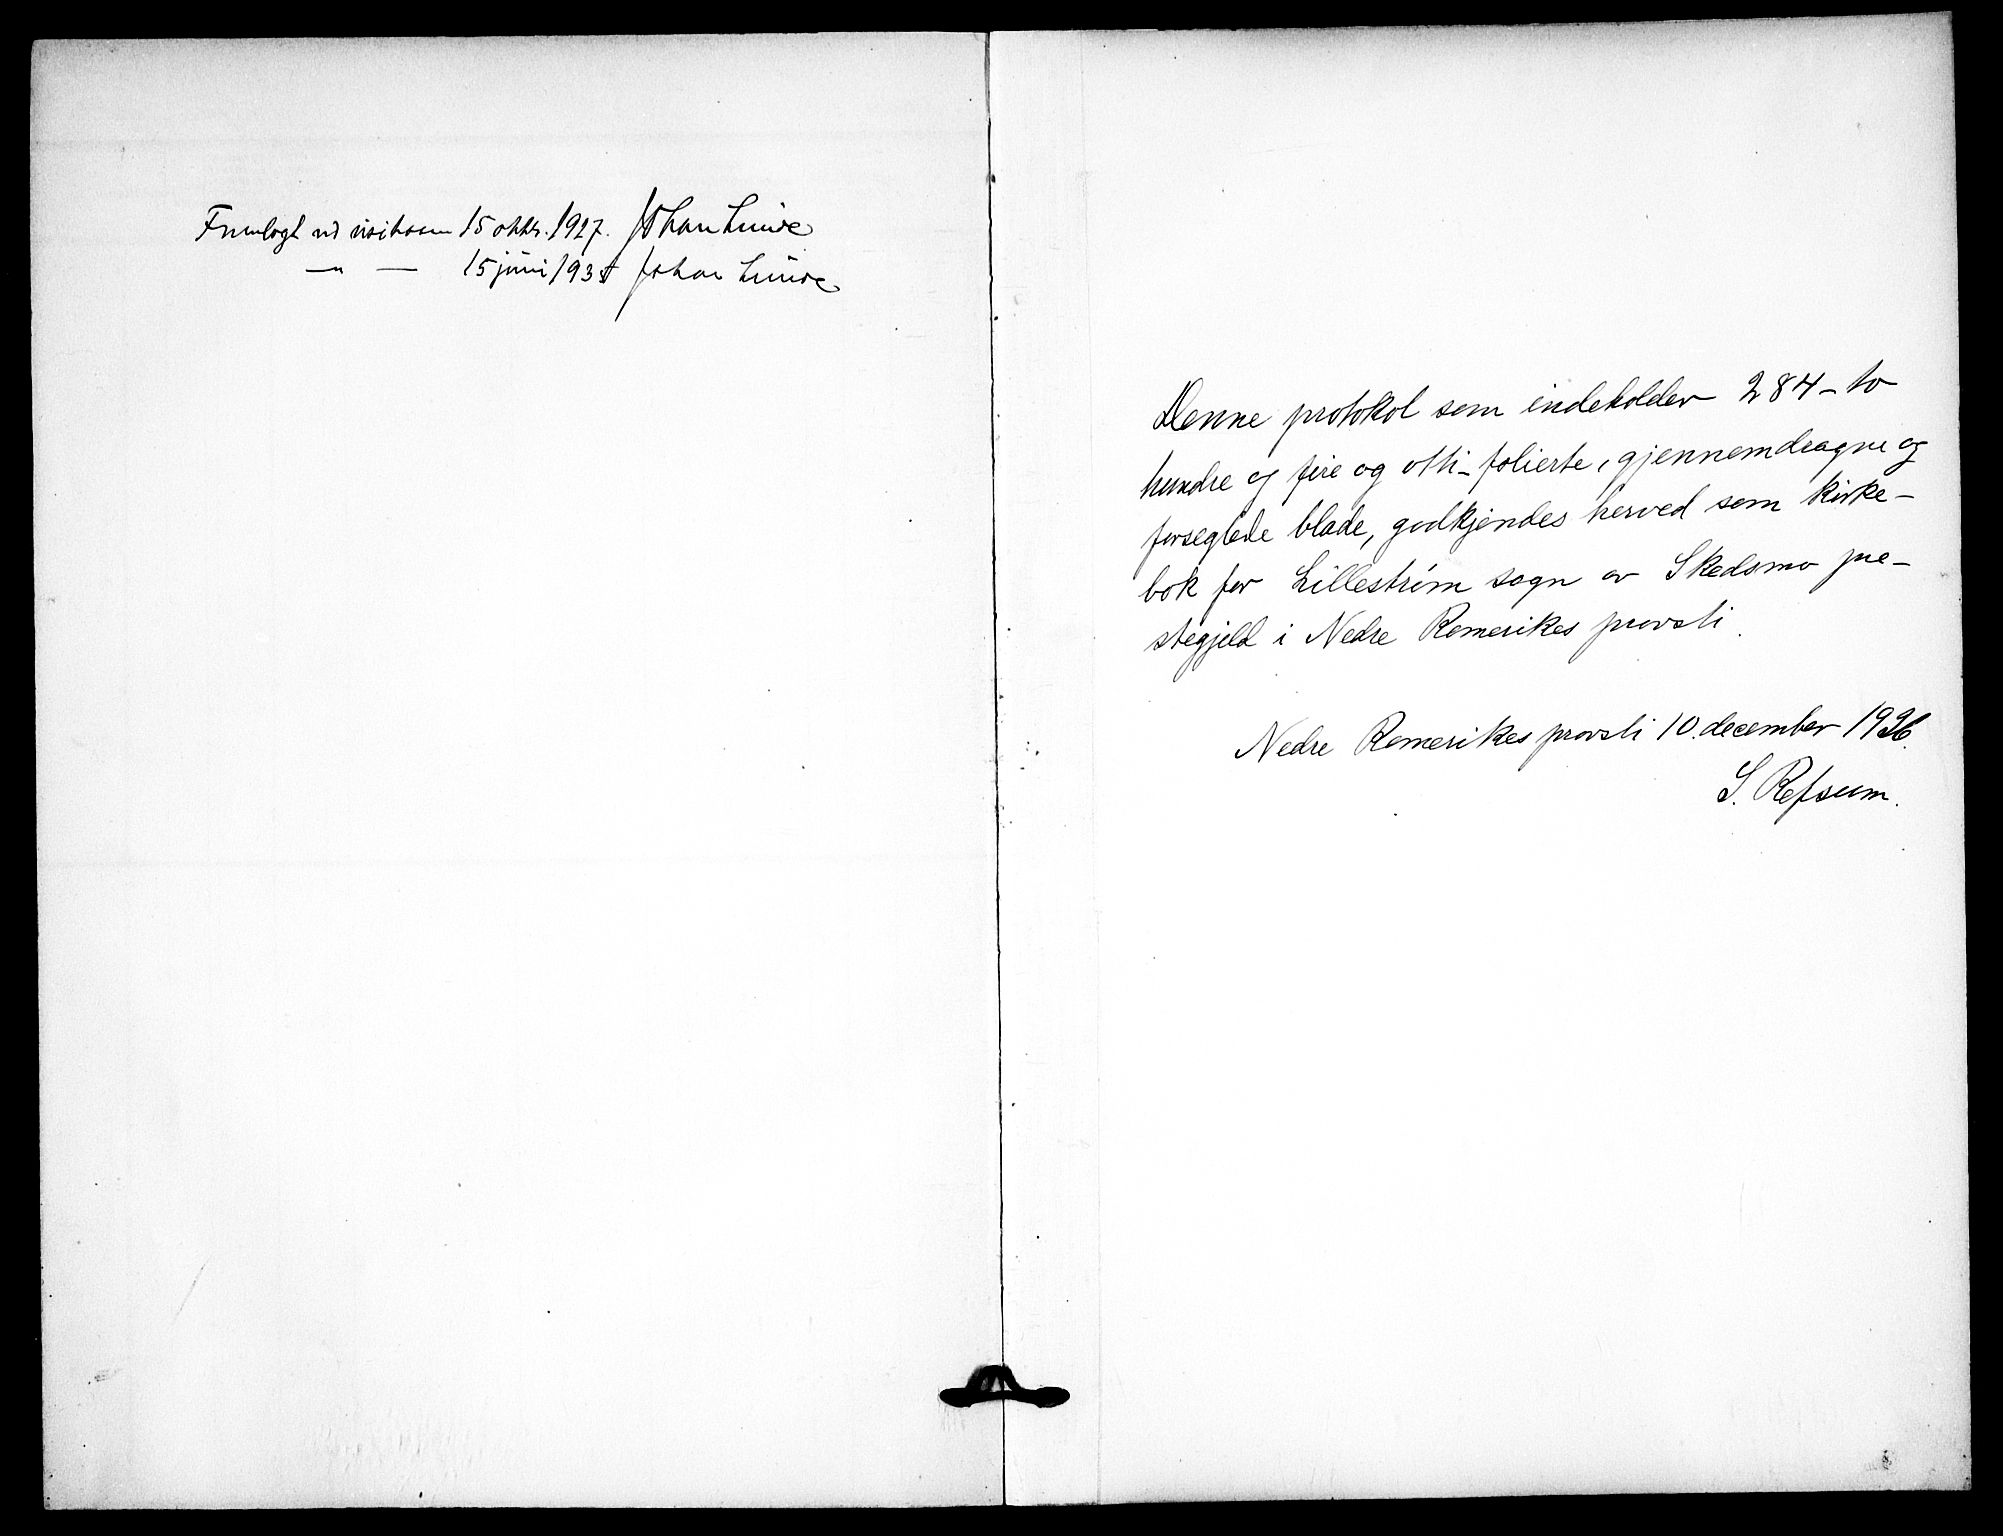 Fremlagt ved visitasen 15 oktbr. 1927. Johan Lunde
— " — 15 juni 193 Johan Lunde
Denne protokol som indeholder 284 – to
hundre og fire og otti – folierte, gjennemdragne og
forseglede blade, godkjendes herved som kirke-
bok for Lillestrøm sogn av Skedsmo pre-
stegjeld i Nedre Romerikes provsti.
Nedre Romerikes provsti 10. december 1926.
S. Refsum.